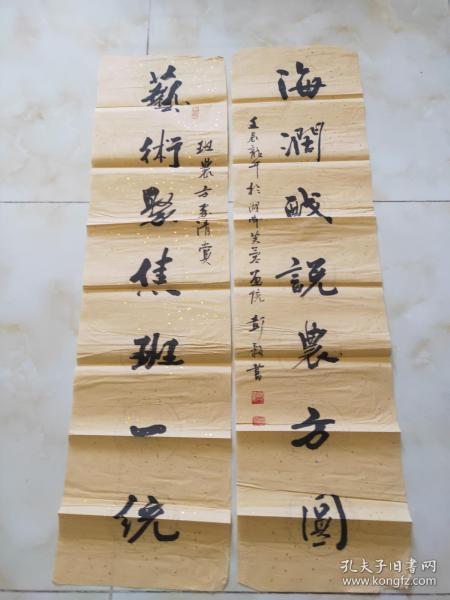 海潤說農方圓
壬辰於湖南芙蓉画院 彭書
班農方家清賞
藝術聚焦班一統
孔夫子旧书网
www.kongfz.com